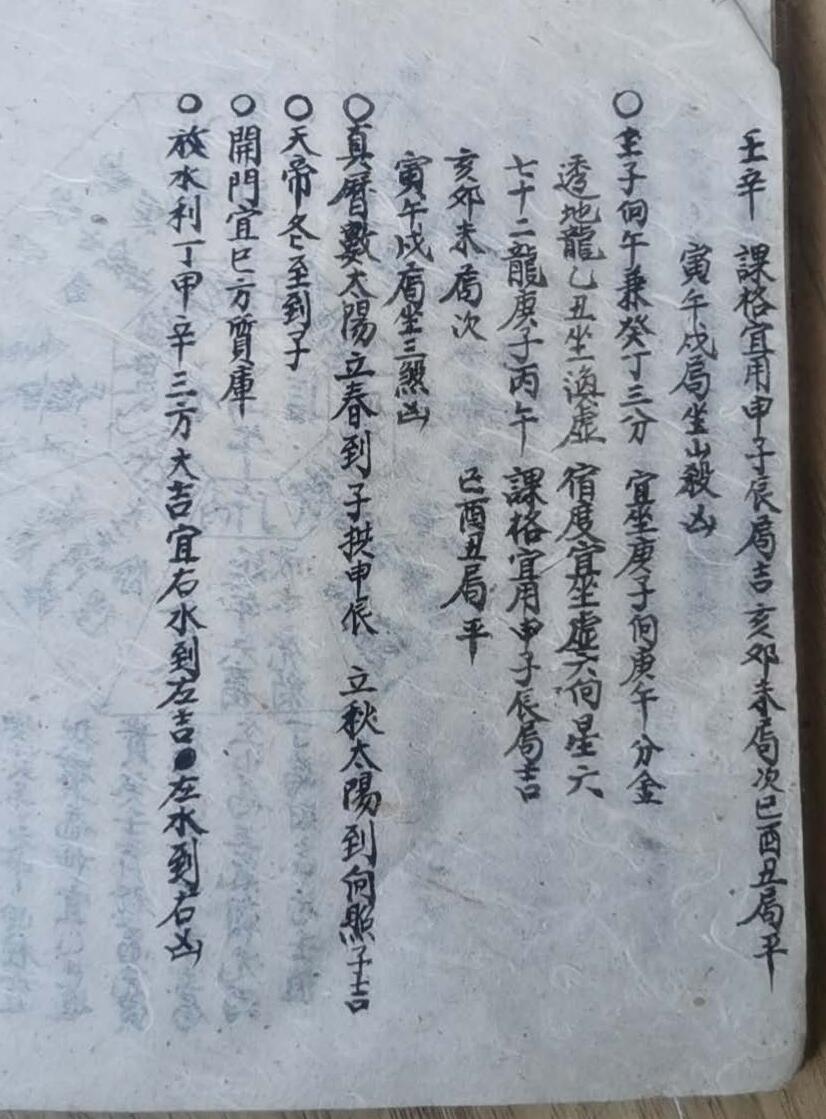 壬辛 課格宜用申子辰局吉亥邜未局次巳酉丑局平
寅午戌局坐山殺凶
○主子向午兼癸丁三分 宜坐庚子向庚午分金
透地龍乙丑坐 虛 宿度宜坐虛六向星六
七十二龍庚子丙午 課格宜用申子辰局吉
亥邜未局次 巳酉丑局平
寅午戌局坐三煞凶
○真曆數太陽立春到子拱申辰 立秋太陽到向照子吉
○天帝冬至到子
○開門宜巳方質庫
○放水利丁甲辛三方大吉宜右水到左吉●左水到右凶